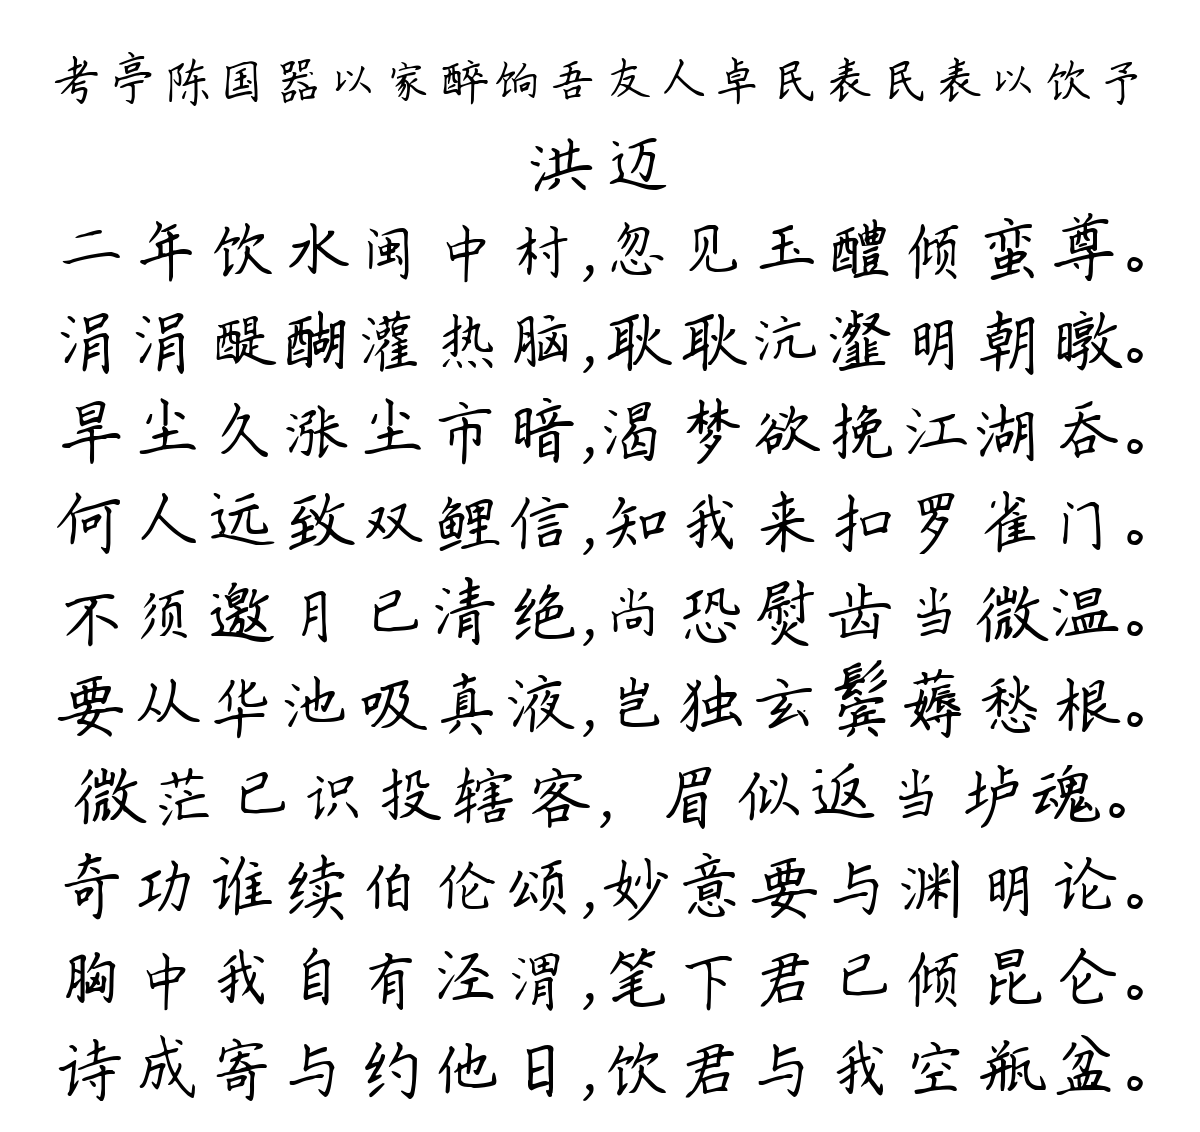 考亭陈国器以家醉饷吾友人卓民表民表以饮予
洪迈
二年饮水闽中村,忽见玉醴倾蛮尊。
涓涓醍醐灌热脑,耿耿沆瀣明朝暾。
旱尘久涨尘市暗,渴梦欲挽江湖吞。
何人远致双鲤信,知我来扣罗雀门。
不须邀月已清绝,尚恐熨齿当微温。
要从华池吸真液,岂独玄鬓薅愁根。
微茫已识投辖客,眉似返当垆魂。
奇功谁续伯伦颂,妙意要与渊明论。
胸中我自有泾渭,笔下君已倾昆仑。
诗成寄与约他日,饮君与我空瓶盆。